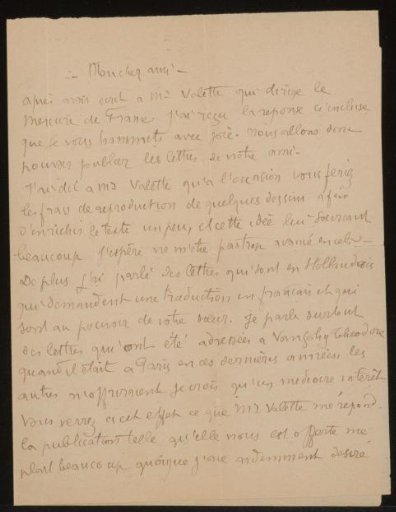 - Mon cher ami -
après avoir écrit a Mr Valette qui dirige le
Mercure de France j'ai reçu la reponse ci incluse
que je vous transmets avec joie. Nous allons donc
pouvoir publier les lettres de notre ami -
J'ai dit a Mr Valette qu'a l'occasion vous feriez
les frais de reproduction de quelques dessins afin
d'enrichir le texte un peu, et cette idée lui souriant
beaucoup j'espère ne m'être pas trop avancé en cela -
De plus j'ai parlé des lettres qui sont en Hollandais
qui demandent une traduction en français et qui
sont au pouvoir de votre sœur. Je parle surtout
des lettres qui ont été adressées a Vangogh Theodore
quand il était a Paris en ces dernières années les
autres n'offriraient je crois qu'un mediocre interêt
Vous verrez a cet effet ce que Mr Valette me répond.
La publication telle qu'elle nous est offerte me
plait beaucoup quoique j'aie ardemment desiré